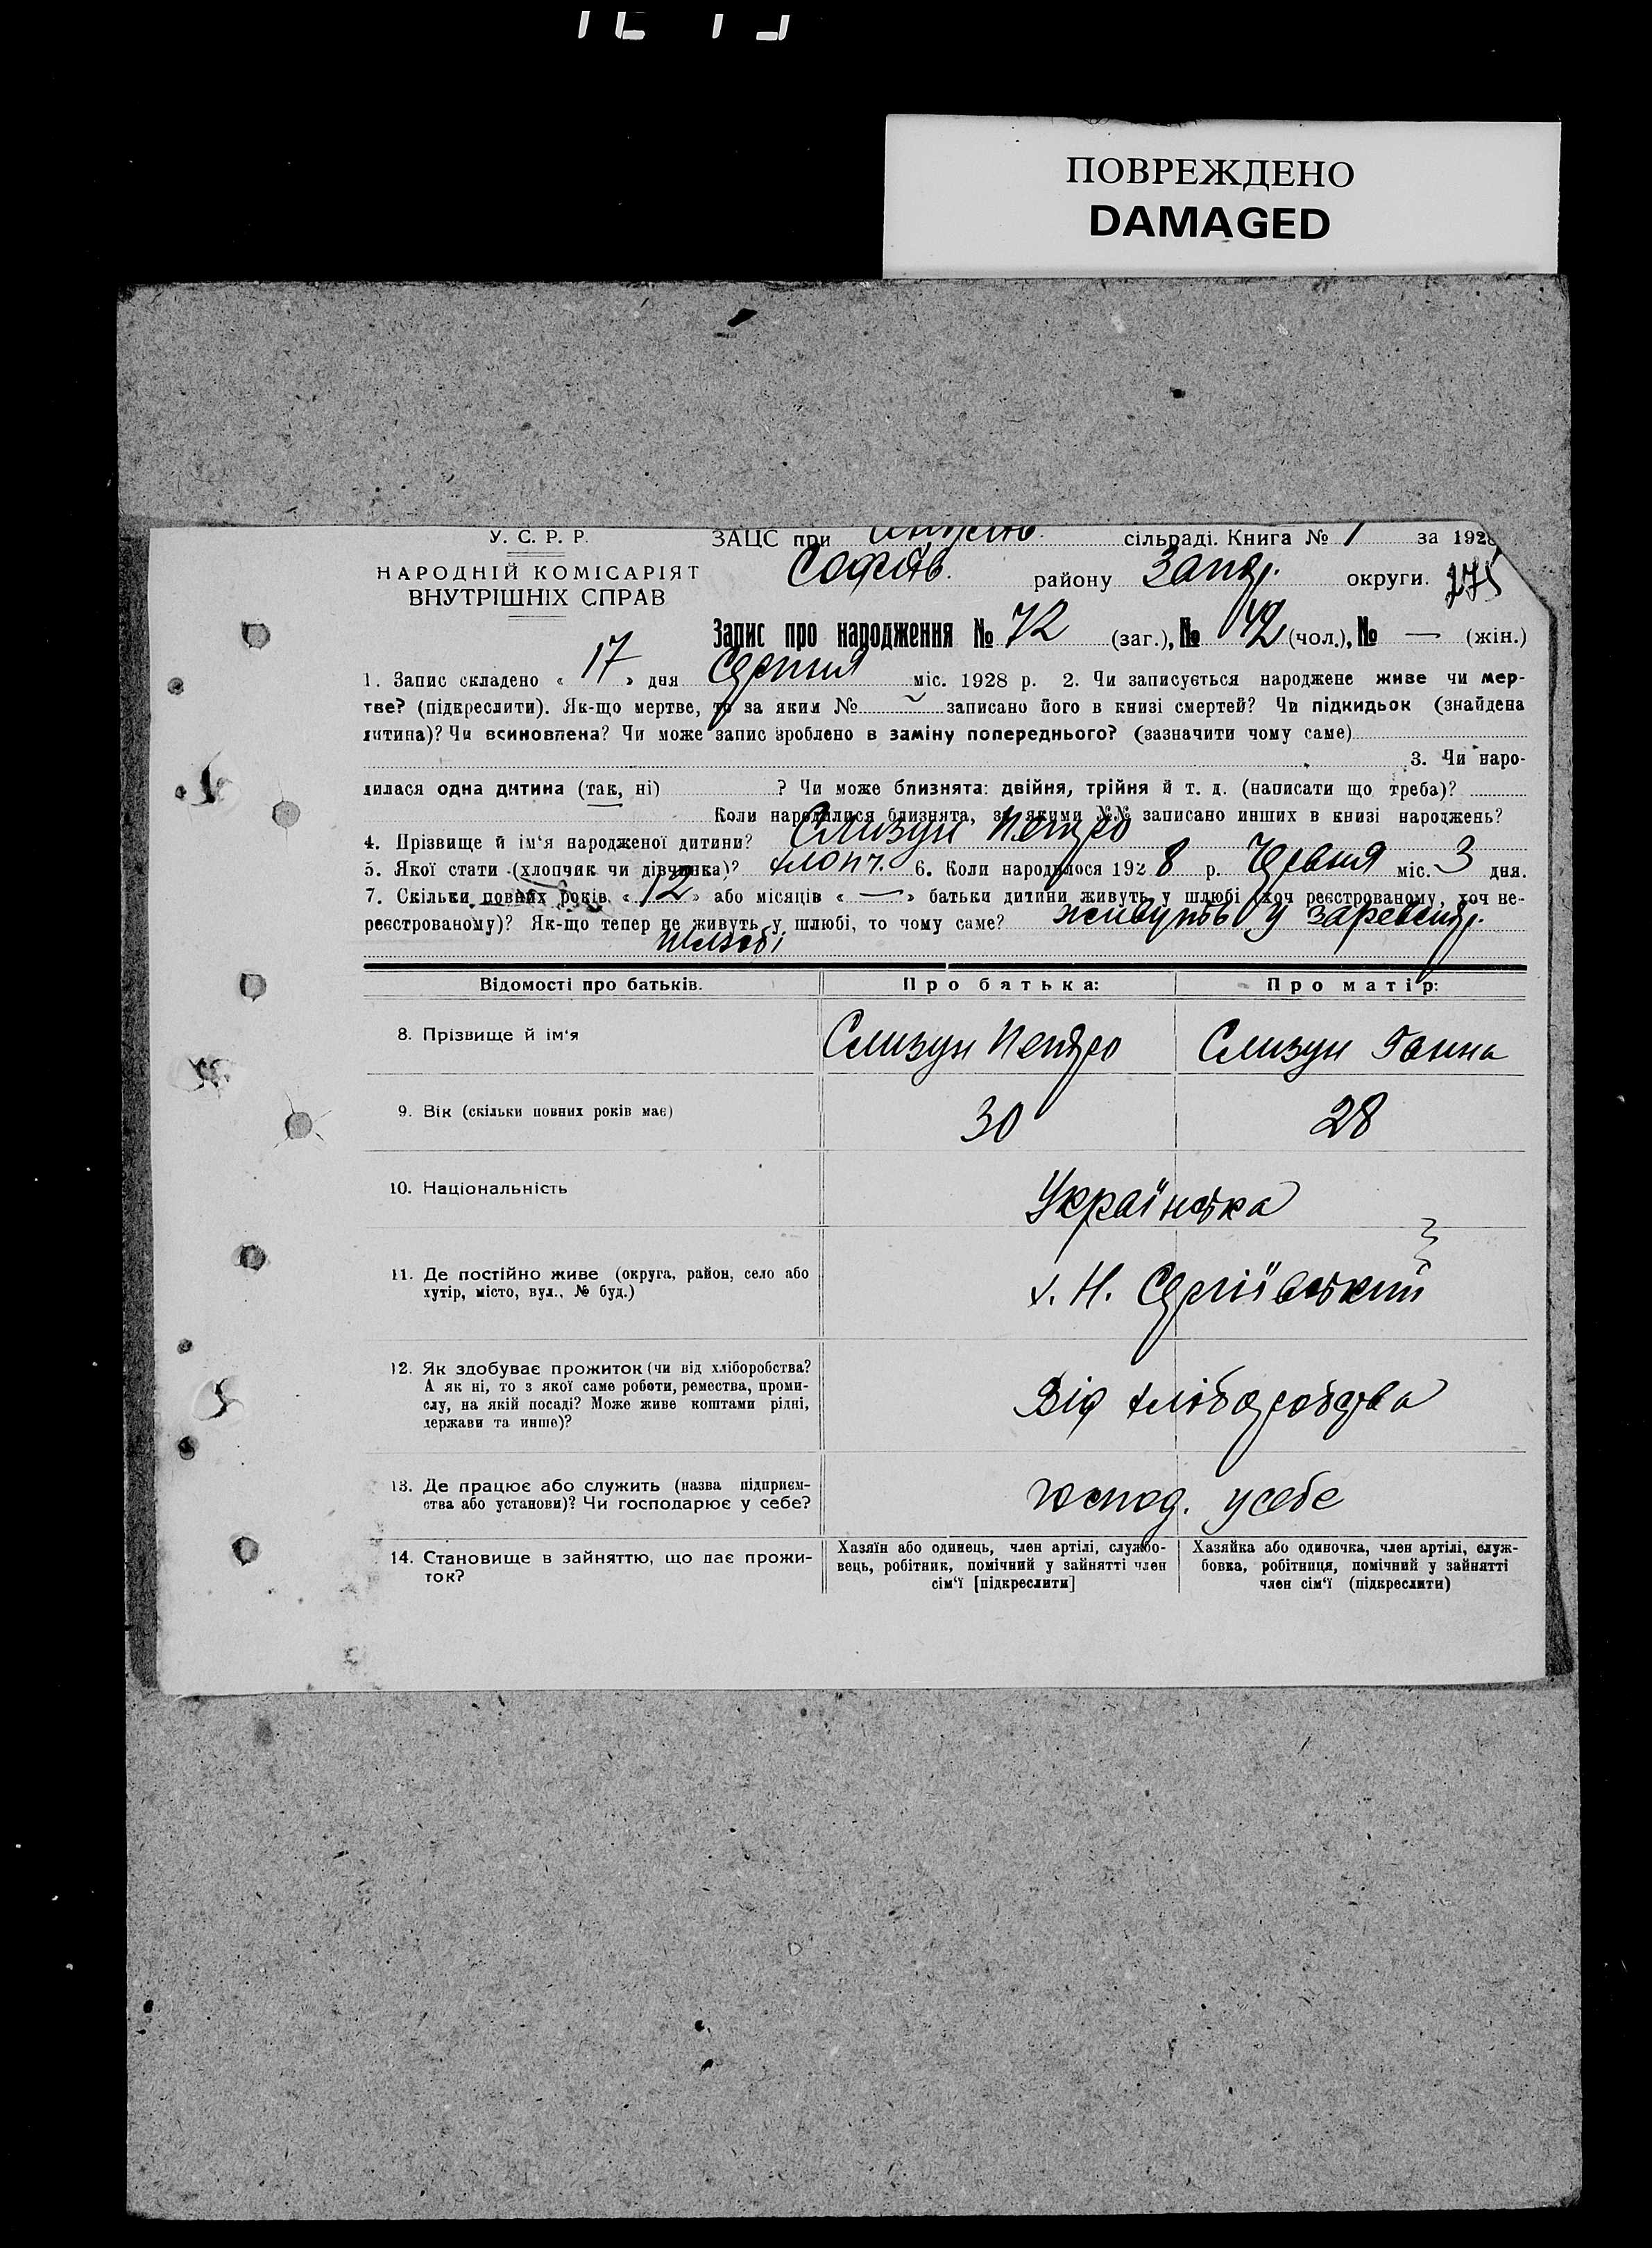 ПОВРЕЖДЕНО
DAMAGED
У. С. Р. Р.
НАРОДНІЙ КОМІСАРІЯТ
ВНУТРІШНІХ СПРАВ
ЗАЦС при сільраді. Книга № 1 за 1928
Софіїв. району Запор. округи. 275
Запис про народження № 72 (заг.), № 42 (чол.), № — (жін.)
1. Запис складено « 17 » дня Серпня міс. 1928 р. 2. Чи записується народжене живе чи мер-
тве? (підкреслити). Як-що мертве, то за яким № записано його в книзі смертей? Чи підкидьок (знайдена
дитина)? Чи всиновлена? Чи може запис зроблено в заміну попереднього? (зазначити чому саме)
3. Чи наро-
дилася одна дитина (так, ні) ? Чи може близнята: двійня, трійня й т. д. (написати що треба)?
Коли народилися близнята, за якими №№ записано инших в книзі народжень?
4. Прізвище й ім'я народженої дитини? Слизун Петро
5. Якої стати (хлопчик чи дівчинка)? хлопч. 6. Коли народилося 1928 р. Червня міс. 3 дня.
7. Скільки повних років « 12 » або місяців « — » батьки дитини живуть у шлюбі (хоч реєстрованому, хоч не-
реєстрованому)? Як-що тепер не живуть у шлюбі, то чому саме? живуть у зареєстр.
шлюбі
Відомості про батьків. Про батька: Про матір:
8. Прізвище й ім'я Слизун Петро Слизун Ганна
9. Вік (скільки повних років має) 30 28
10. Національність Українська
11. Де постійно живе (округа, район, село або
хутір, місто, вул., № буд.) х. Н. Сергіївський
12. Як здобуває прожиток (чи від хліборобства?
А як ні, то з якої саме роботи, ремества, проми-
слу, на якій посаді? Може живе коштами рідні,
держави та инше)? Від хліборобства
13. Де працює або служить (назва підприєм-
ства або установи)? Чи господарює у себе? господ. у себе
14. Становище в зайняттю, що дає прожи-
ток?
Хазяїн або одинець, член артілі, службо-
вець, робітник, помічний у зайнятті член
сім'ї [підкреслити]
Хазяйка або одиночка, член артілі, служ-
бовка, робітниця, помічний у зайнятті
член сім'ї (підкреслити)